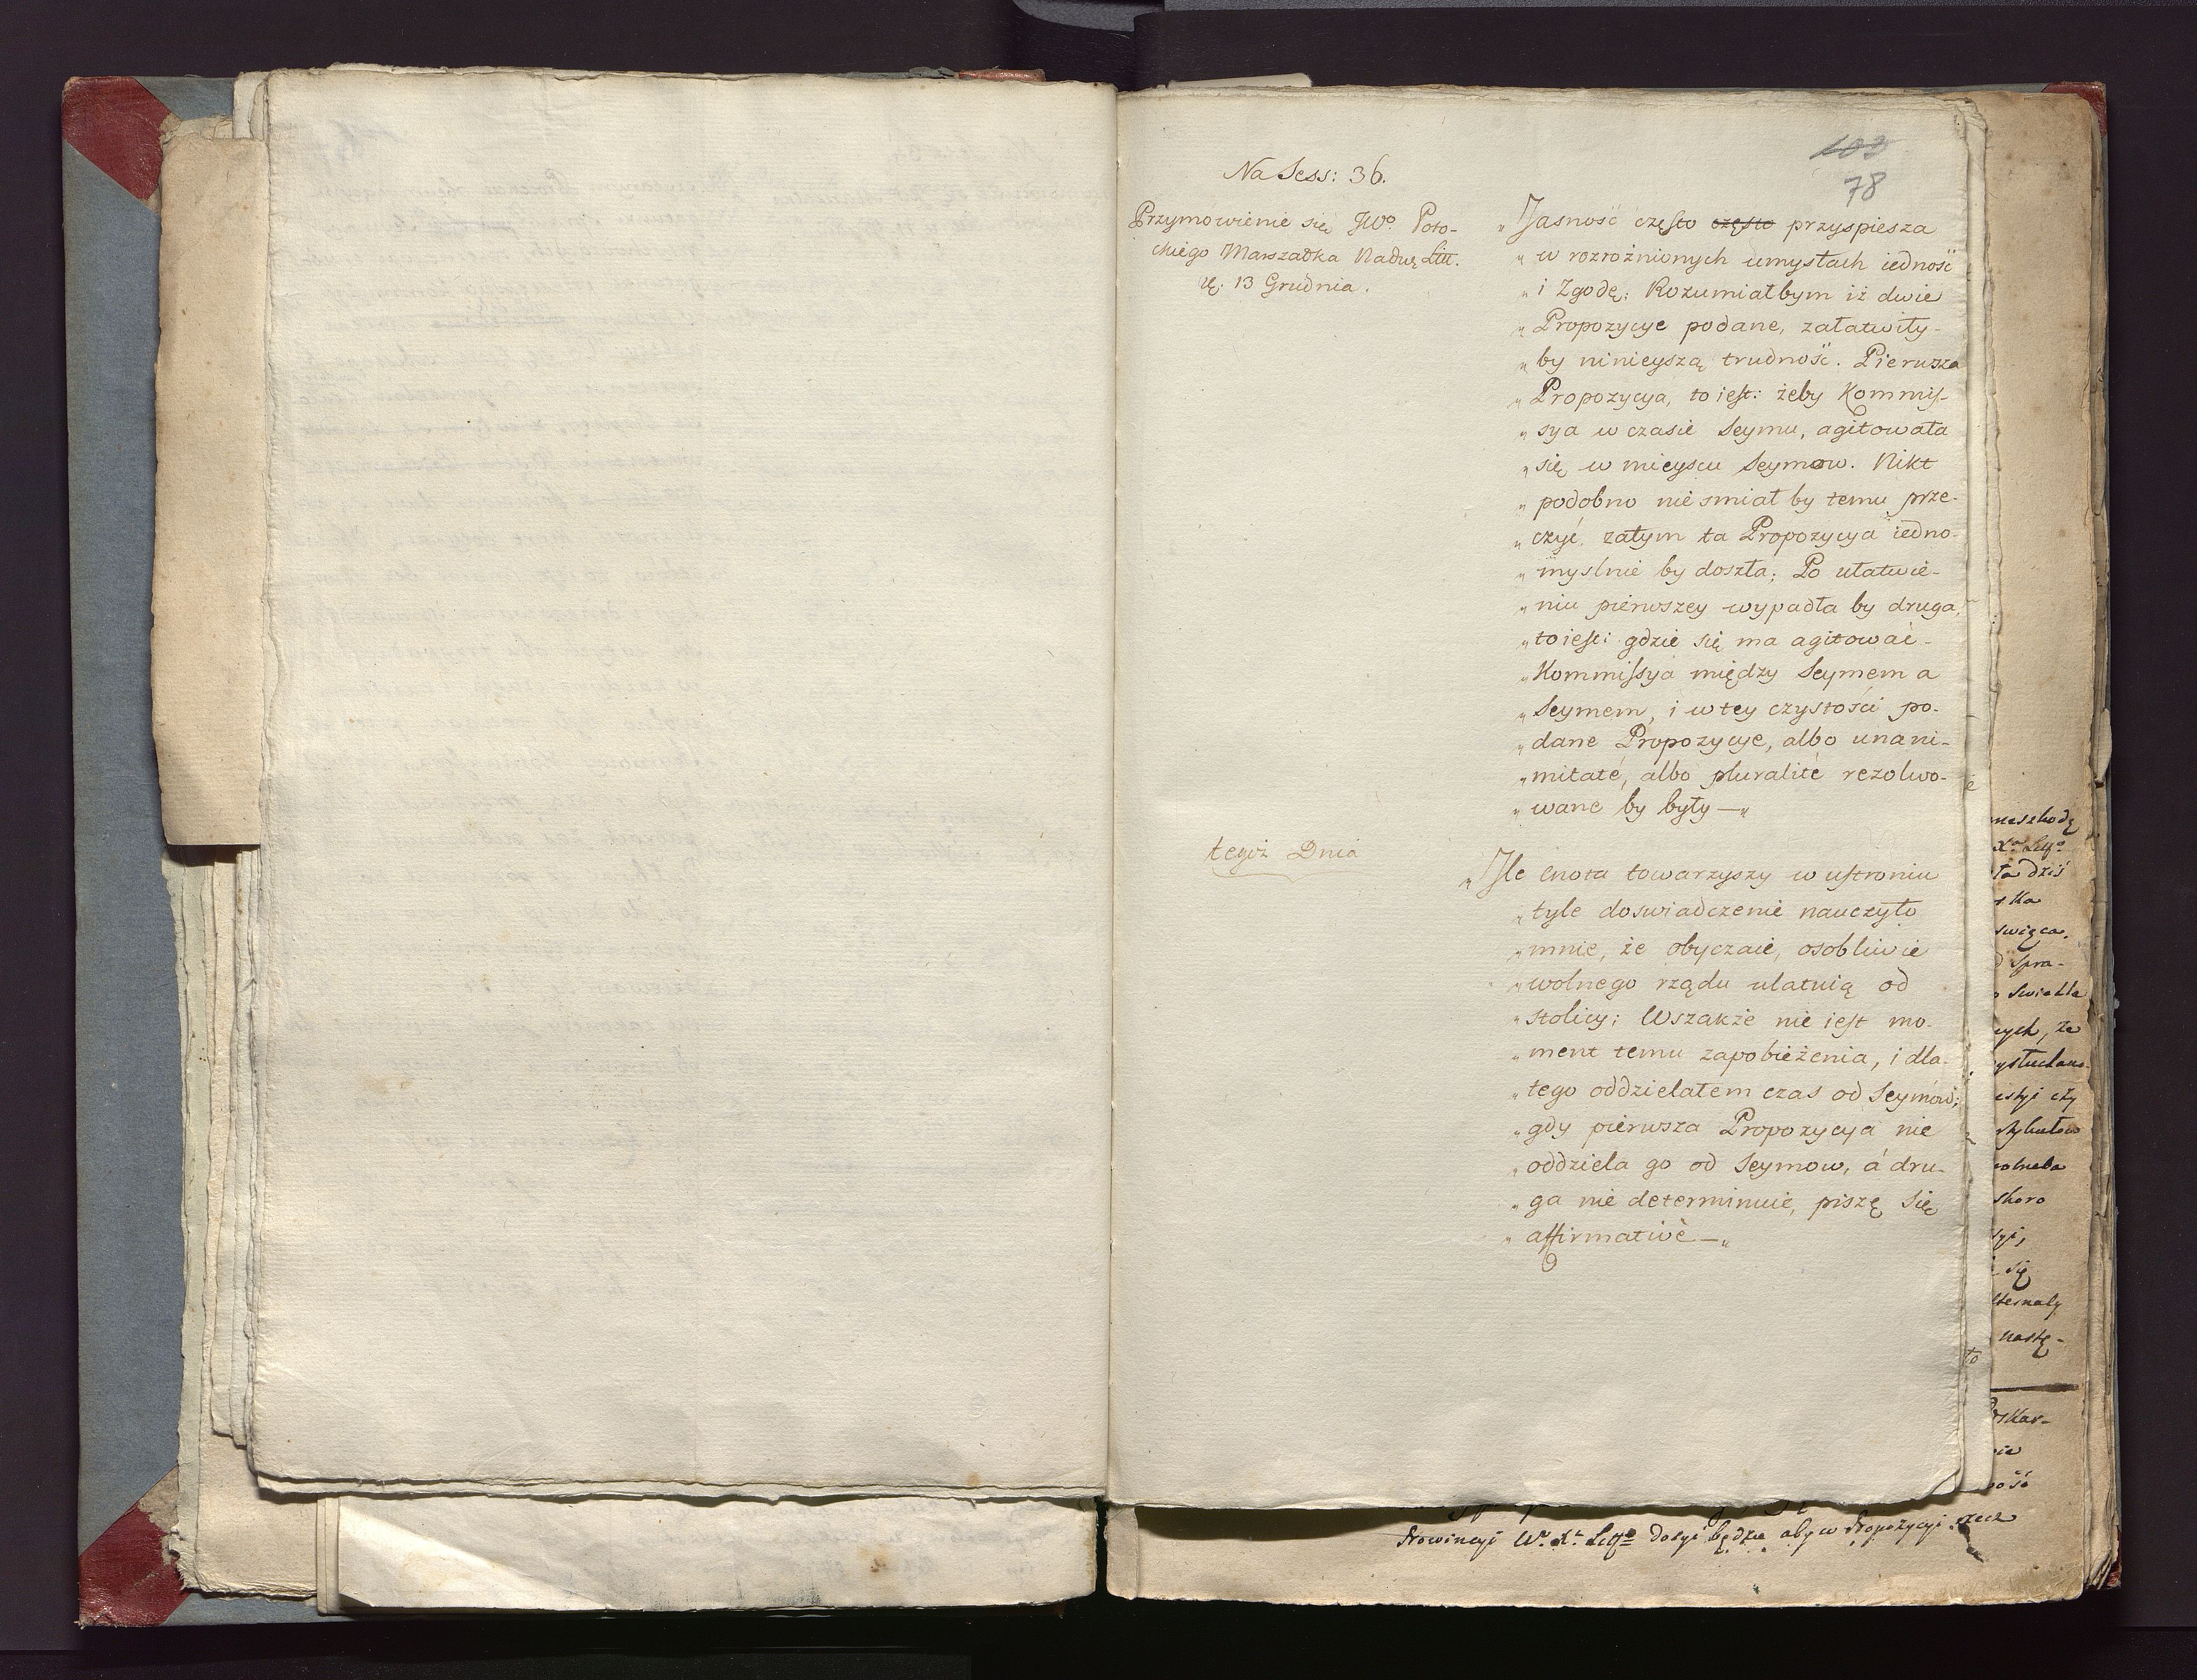 103
78
Na Sess: 36.
Przymowienie się JWo. Poto-
ckiego Marszałka Nadwę Litt.
13 Grudnia.
„Jasność często często przyspiesza
„w rozrożnionych umysłach iedność
„i Zgodę; Rozumiałbym iż dwie
„Propozycye podane, załatwiły-
„by ninieyszą trudność. Pierwsza
„Propozycya, to iest: żeby Kommis-
„sya w czasie Seymu, agitowała
„się w mieyscu Seymow. Nikt
„podobno nie smiał by temu prze-
„czyć, zatym ta Propozycya iedno-
„myslnie by doszła; Po ułatwie-
„niu pierwszey wypadła by druga,
„to iest: gdzie się ma agitować
„Kommissya między Seymem a
„Seymem, i w tey czystości po-
„dane Propozycye, albo unani-
„mitate, albo pluralite rezolwo-
„wane by były—„
tegoż Dnia
„Ile cnota towarzyszy w ustroniu
„tyle doswiadczenie nauczyło
„mnie, że obyczaie, osobliwie
„wolnego rządu ulatuią od
„stolicy; Wszakże nie iest mo-
„ment temu zapobieżenia, i dla-
„tego oddzielałem czas od Seymów;
„gdy pierwsza Propozycya nie
„oddziela go od Seymow, á dru-
„ga nie determinuie, piszę się
„affirmativè—„
Prowincyi W. X. Litt dosyć będzie aby w Propozycyi rzecz